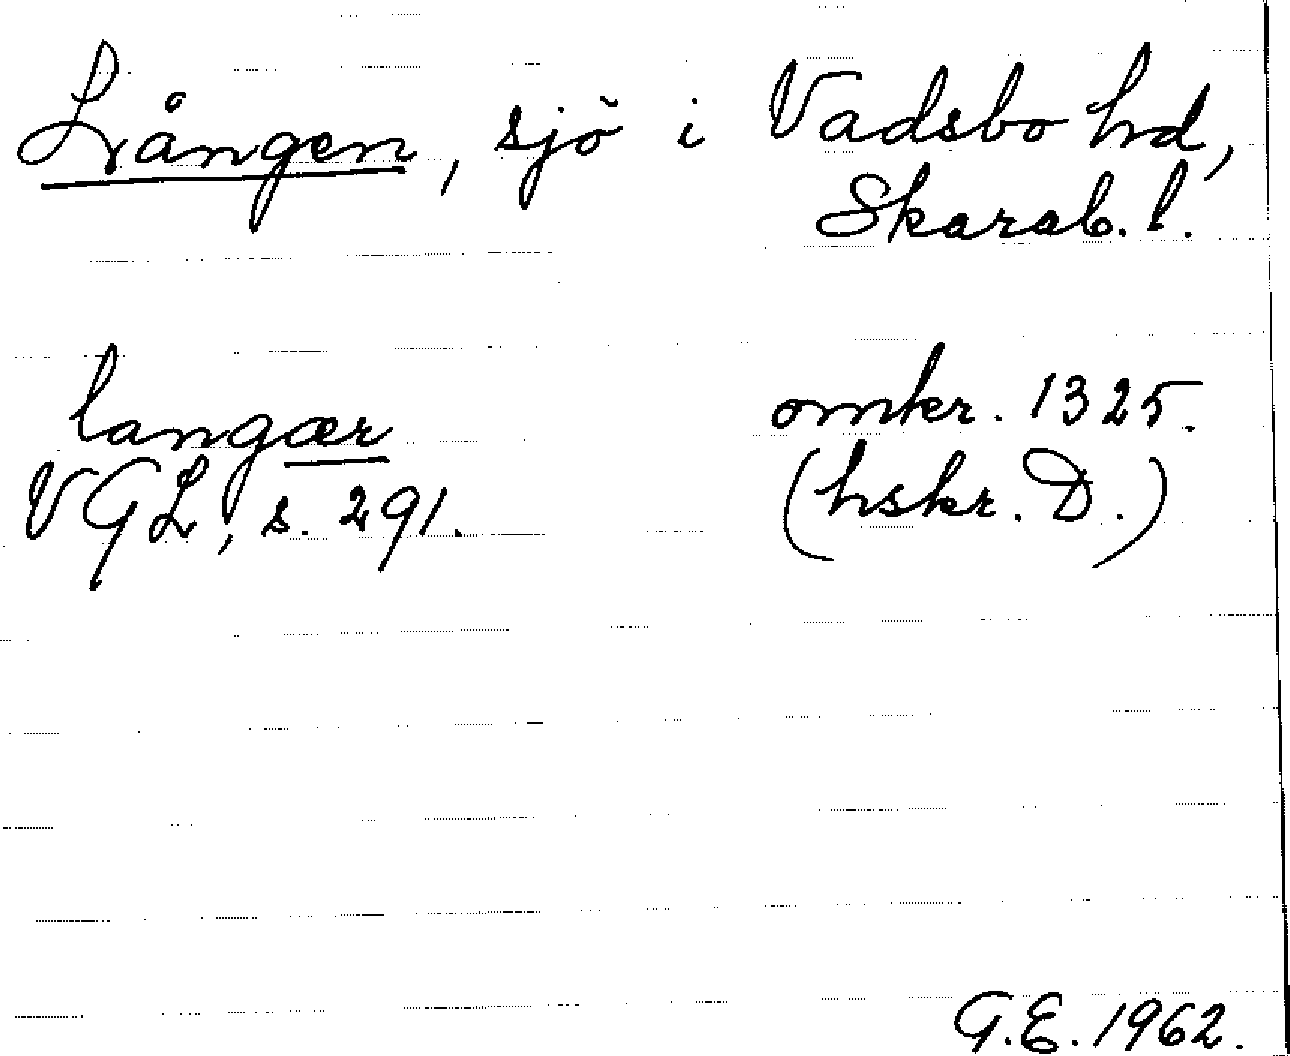 Lången, sjö i Vadsbo hd,
Skarab. l.
langær omkr. 1325.
VGL, s. 291. (hskr. D.)
G.E. 1962.